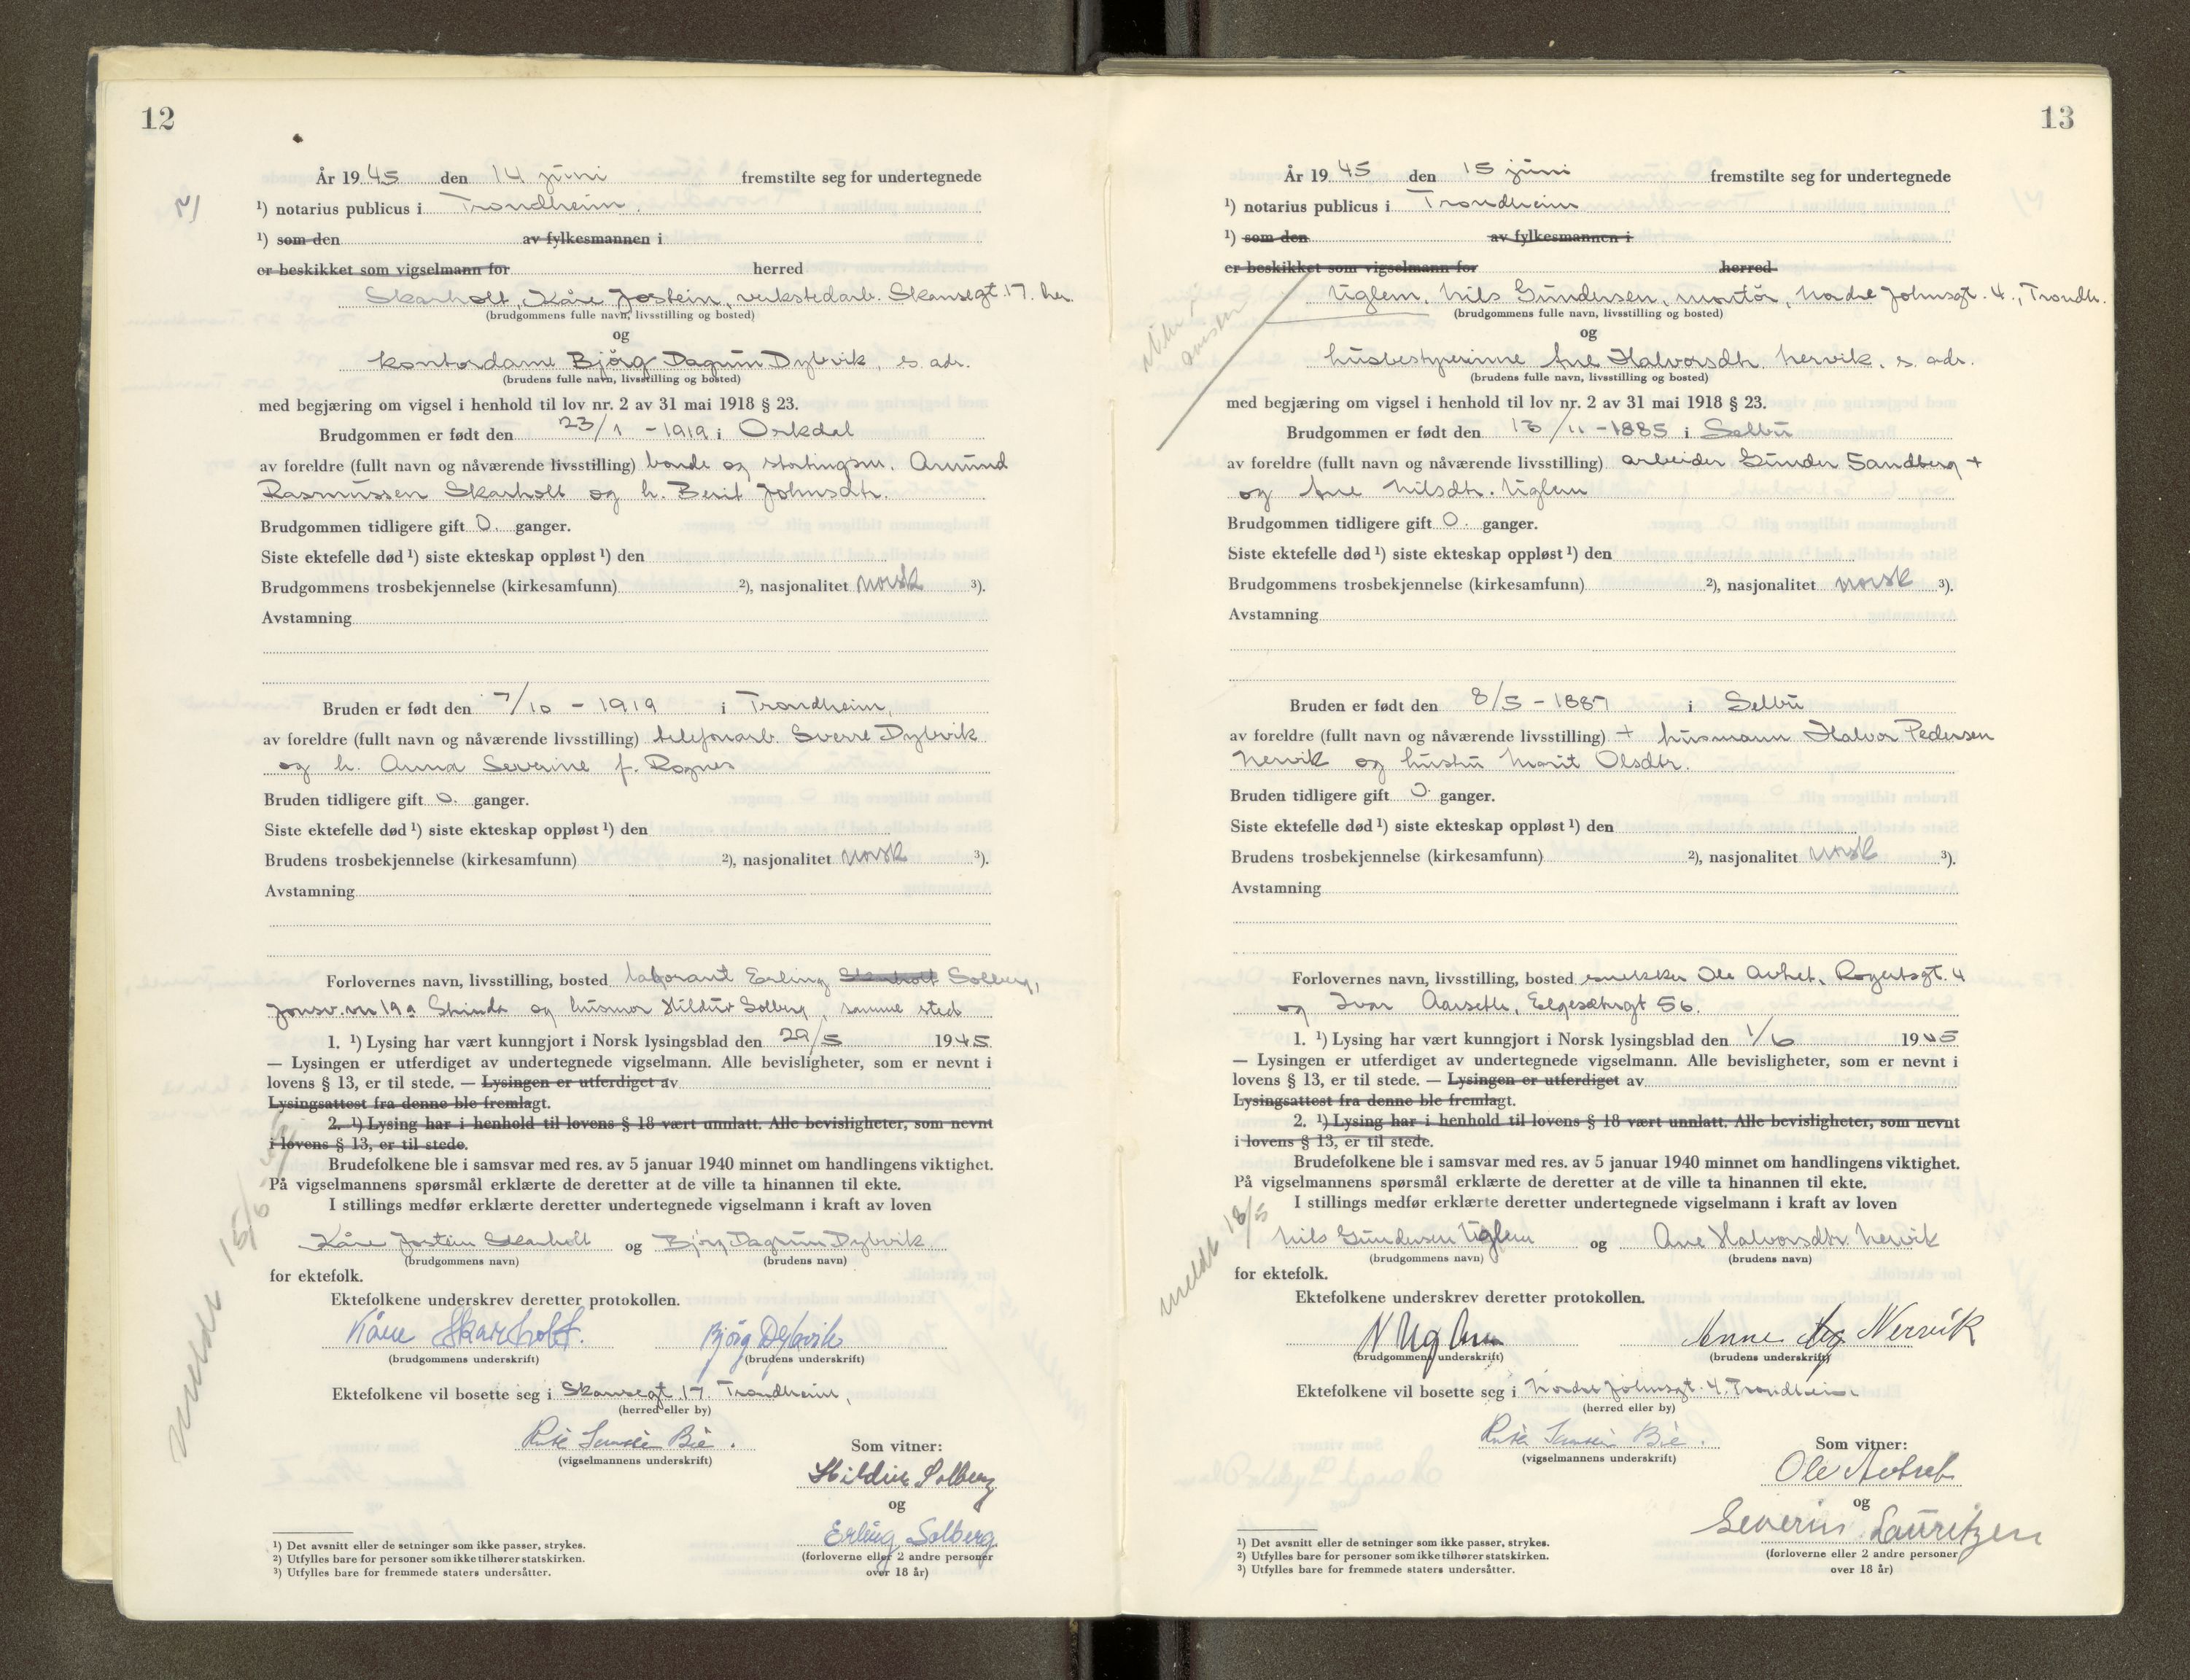 12
År 1945 den 14 juni fremstilte seg for undertegnede
¹) notarius publicus i Trondheim.
¹) som den av fylkesmannen i
er beskikket som vigselmann for herred
Skarholt, Kåre Jostein, verkstedarb. Skansegt. 17. her
(brudgommens fulle navn, livsstilling og bosted)
og
kontordame Bjørg Dagrun Dybvik, s. adr.
(brudens fulle navn, livsstilling og bosted)
med begjæring om vigsel i henhold til lov nr. 2 av 31 mai 1918 § 23.
Brudgommen er født den 23/1 - 1919 i Orkdal
av foreldre (fullt navn og nåværende livsstilling) bonde og stortingsm. Amund
Rasmussen Skarholt og h. Berit Johnsdtr.
Brudgommen tidligere gift 0. ganger.
Siste ektefelle død ¹) siste ekteskap oppløst ¹) den
Brudgommens trosbekjennelse (kirkesamfunn) ²), nasjonalitet norsk ³).
Avstamning
Bruden er født den 7/10 - 1919 i Trondheim,
av foreldre (fullt navn og nåværende livsstilling) telefonarb. Sverre Dybvik
og h. Anna Severine f. Rognes
Bruden tidligere gift 0. ganger.
Siste ektefelle død ¹) siste ekteskap oppløst ¹) den
Brudens trosbekjennelse (kirkesamfunn) ²), nasjonalitet norsk ³).
Avstamning
Forlovernes navn, livsstilling, bosted laborant Erling Skarholt Solberg,
Jonsv.vn 19a Strinda og husmor Hildur Solberg, samme sted
1. ¹) Lysing har vært kunngjort i Norsk lysingsblad den 29/5 1945
— Lysingen er utferdiget av undertegnede vigselmann. Alle bevisligheter, som er nevnt i
lovens § 13, er til stede. — Lysingen er utferdiget av
Lysingsattest fra denne ble fremlagt.
2. ¹) Lysing har i henhold til lovens § 18 vært unnlatt. Alle bevisligheter, som nevnt
i lovens § 13, er til stede.
Brudefolkene ble i samsvar med res. av 5 januar 1940 minnet om handlingens viktighet.
På vigselmannens spørsmål erklærte de deretter at de ville ta hinannen til ekte.
I stillings medfør erklærte deretter undertegnede vigselmann i kraft av loven
Kåre Jostein Skarholt og Bjørg Dagrun Dybvik
(brudgommens navn) (brudens navn)
for ektefolk.
Ektefolkene underskrev deretter protokollen.
Kåre Skarholt. Bjørg Dybvik
(brudgommens underskrift) (brudens underskrift)
Ektefolkene vil bosette seg i Skansegt 17. Trondheim,
(herred eller by)
(vigselmannens underskrift)
Som vitner:
Hildur Solberg
og
Erling Solberg
(forloverne eller 2 andre personer
over 18 år)
¹) Det avsnitt eller de setninger som ikke passer, strykes.
²) Utfylles bare for personer som ikke tilhører statskirken.
³) Utfylles bare for fremmede staters undersåtter.
meldt 15/6
13
År 1945 den 15 juni fremstilte seg for undertegnede
¹) notarius publicus i Trondheim
¹) som den av fylkesmannen i
er beskikket som vigselmann for herred
Uglem, Nils Gundersen, montør, Nordre Johnsgt. 4., Trondh.
(brudgommens fulle navn, livsstilling og bosted)
og
husbestyrerinne Ane Halvorsdtr. Nervik, s. adr.
(brudens fulle navn, livsstilling og bosted)
med begjæring om vigsel i henhold til lov nr. 2 av 31 mai 1918 § 23.
Brudgommen er født den 13/11 - 1885 i Selbu
av foreldre (fullt navn og nåværende livsstilling) arbeider Gunder Sandberg +
og Ane Nilsdtr. Uglem
Brudgommen tidligere gift 0. ganger.
Siste ektefelle død ¹) siste ekteskap oppløst ¹) den
Brudgommens trosbekjennelse (kirkesamfunn) ²), nasjonalitet norsk ³).
Avstamning
Bruden er født den 8/5 - 1887 i Selbu
av foreldre (fullt navn og nåværende livsstilling) + husmann Halvor Pedersen
Nervik og hustru Marit Olsdtr.
Bruden tidligere gift 0. ganger.
Siste ektefelle død ¹) siste ekteskap oppløst ¹) den
Brudens trosbekjennelse (kirkesamfunn) ²), nasjonalitet norsk ³).
Avstamning
Forlovernes navn, livsstilling, bosted snekker Ole Avhet, Rogertsgt. 4
og Ivar Aarseth, Elgesætergt 56.
1. ¹) Lysing har vært kunngjort i Norsk lysingsblad den 1/6 1945
— Lysingen er utferdiget av undertegnede vigselmann. Alle bevisligheter, som er nevnt i
lovens § 13, er til stede. — Lysingen er utferdiget av
Lysingsattest fra denne ble fremlagt.
2. ¹) Lysing har i henhold til lovens § 18 vært unnlatt. Alle bevisligheter, som nevnt
i lovens § 13, er til stede.
Brudefolkene ble i samsvar med res. av 5 januar 1940 minnet om handlingens viktighet.
På vigselmannens spørsmål erklærte de deretter at de ville ta hinannen til ekte.
I stillings medfør erklærte deretter undertegnede vigselmann i kraft av loven
Nils Gundersen Uglem og Ane Halvorsdtr. Nervik
(brudgommens navn) (brudens navn)
for ektefolk.
Ektefolkene underskrev deretter protokollen.
N Uglem Anne Nervik
(brudgommens underskrift) (brudens underskrift)
Ektefolkene vil bosette seg i Nordre Johnsgt. 4. Trondheim.
(herred eller by)
(vigselmannens underskrift)
Som vitner:
Ole
og
Severin Lauritzen
(forloverne eller 2 andre personer
over 18 år)
¹) Det avsnitt eller de setninger som ikke passer, strykes.
²) Utfylles bare for personer som ikke tilhører statskirken.
³) Utfylles bare for fremmede staters undersåtter.
meldt 18/5